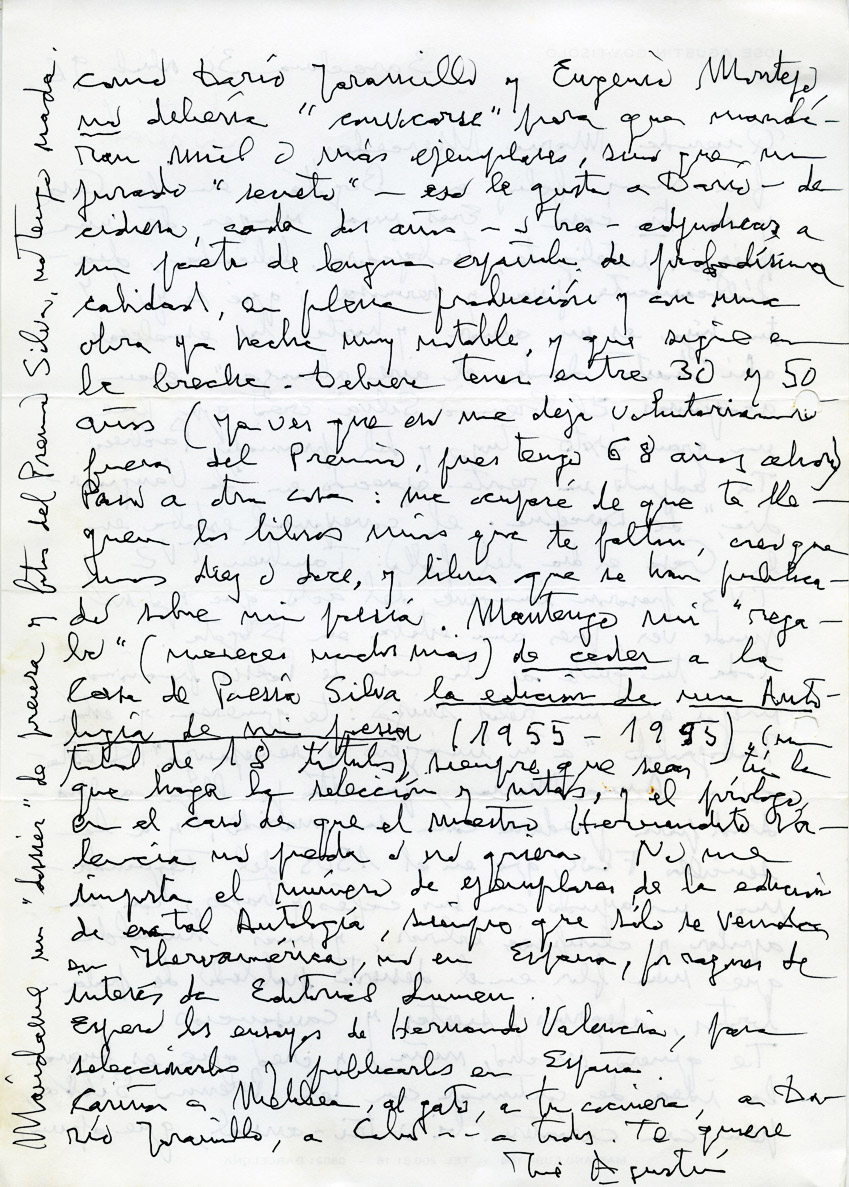 como Darío Jaramillo y Eugenio Montejo,
no debería "convocarse" para que mandá-
ran mil o más ejemplares, sino que un
jurado "secreto" – eso le gusta a Darío – de
cidiera, cada dos años – o tres – adjudicar a
un poeta de lengua española, de probadísima
calidad, en plena producción y con una
obra ya hecha muy notable, y que sigue en
la brecha. Debiera tener entre 30 y 50
años (ya ves que eso me deja
fuera del Premio, pues tengo 68 años ahora)
Paso a otra cosa: me ocuparé de que te lle-
guen los libros míos que te faltan, creo que
unos diez o doce, y libros que se han publica-
do sobre mi poesía. Mantengo mi "rega-
lo" (mereces mucho más) de ceder a la
Casa de Poesía Silva la edición de una Anto-
logía de mi poesía (1955 – 1995), (un
total de 18 títulos), siempre que seas tú la
que haga la selección y notas, y el prólogo,
en el caso de que el maestro Hernandito Va-
lencia no pueda o no quiera. No me
importa el número de ejemplares de la edición
de tal Antología, siempre que sólo se venda
en Iberoamérica, no en España, por razones de
interés de Editorial Lumen.
Espero los ensayos de Hernando Valencia, para
seleccionarlos y publicarlos en España.
Cariños a Melibea, al gato, a tu cocinera, a Da-
río Jaramillo, a Cobo -- a todos. Te quiere
José Agustín
Mándame un "dossier" de prensa y fotos del Premio Silva, no tengo nada.